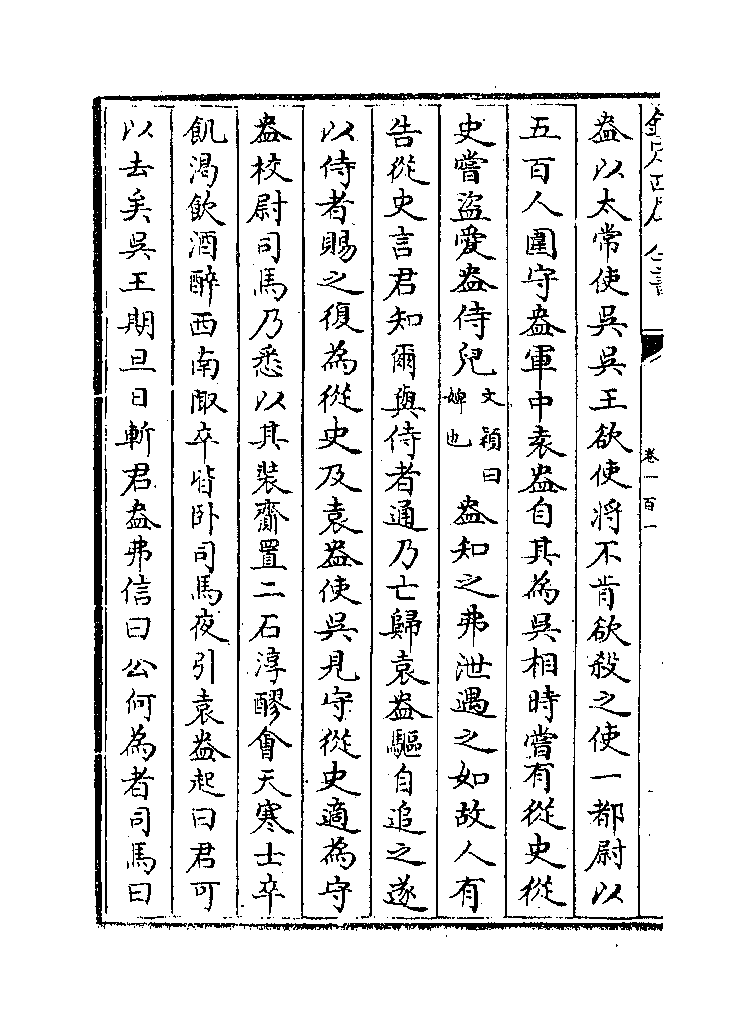 欽定四庫全書
卷一百一
盎以太常使吳吳王欲使將不肯欲殺之使一都尉以
五百人圍守盎軍中袁盎自其為吳相時嘗有從史從
史嘗盜愛盎侍兒文穎曰婢也盎知之弗泄遇之如故人有
告從史言君知爾與侍者通乃亡歸袁盎驅自追之遂
以侍者賜之復為從史及袁盎使吳見守從史適為守
盎校尉司馬乃悉以其裝齎置二石淳醪會天寒士卒
飢渴飲酒醉西南陬卒皆卧司馬夜引袁盎起曰君可
以去矣吳王期旦日斬君盎弗信曰公何為者司馬曰